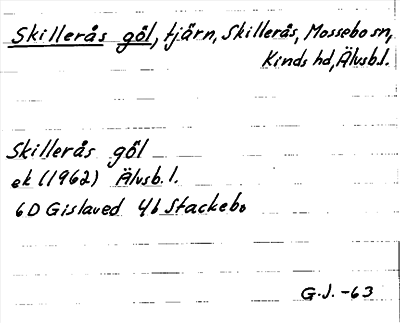 Skillerås göl, tjärn, Skillerås, Mossebo sn,
Kinds hd, Älvsb.l.
Skillerås göl
ek (1962) Älvsb. l.
6D Gislaved 4b Stackebo
G.J. -63